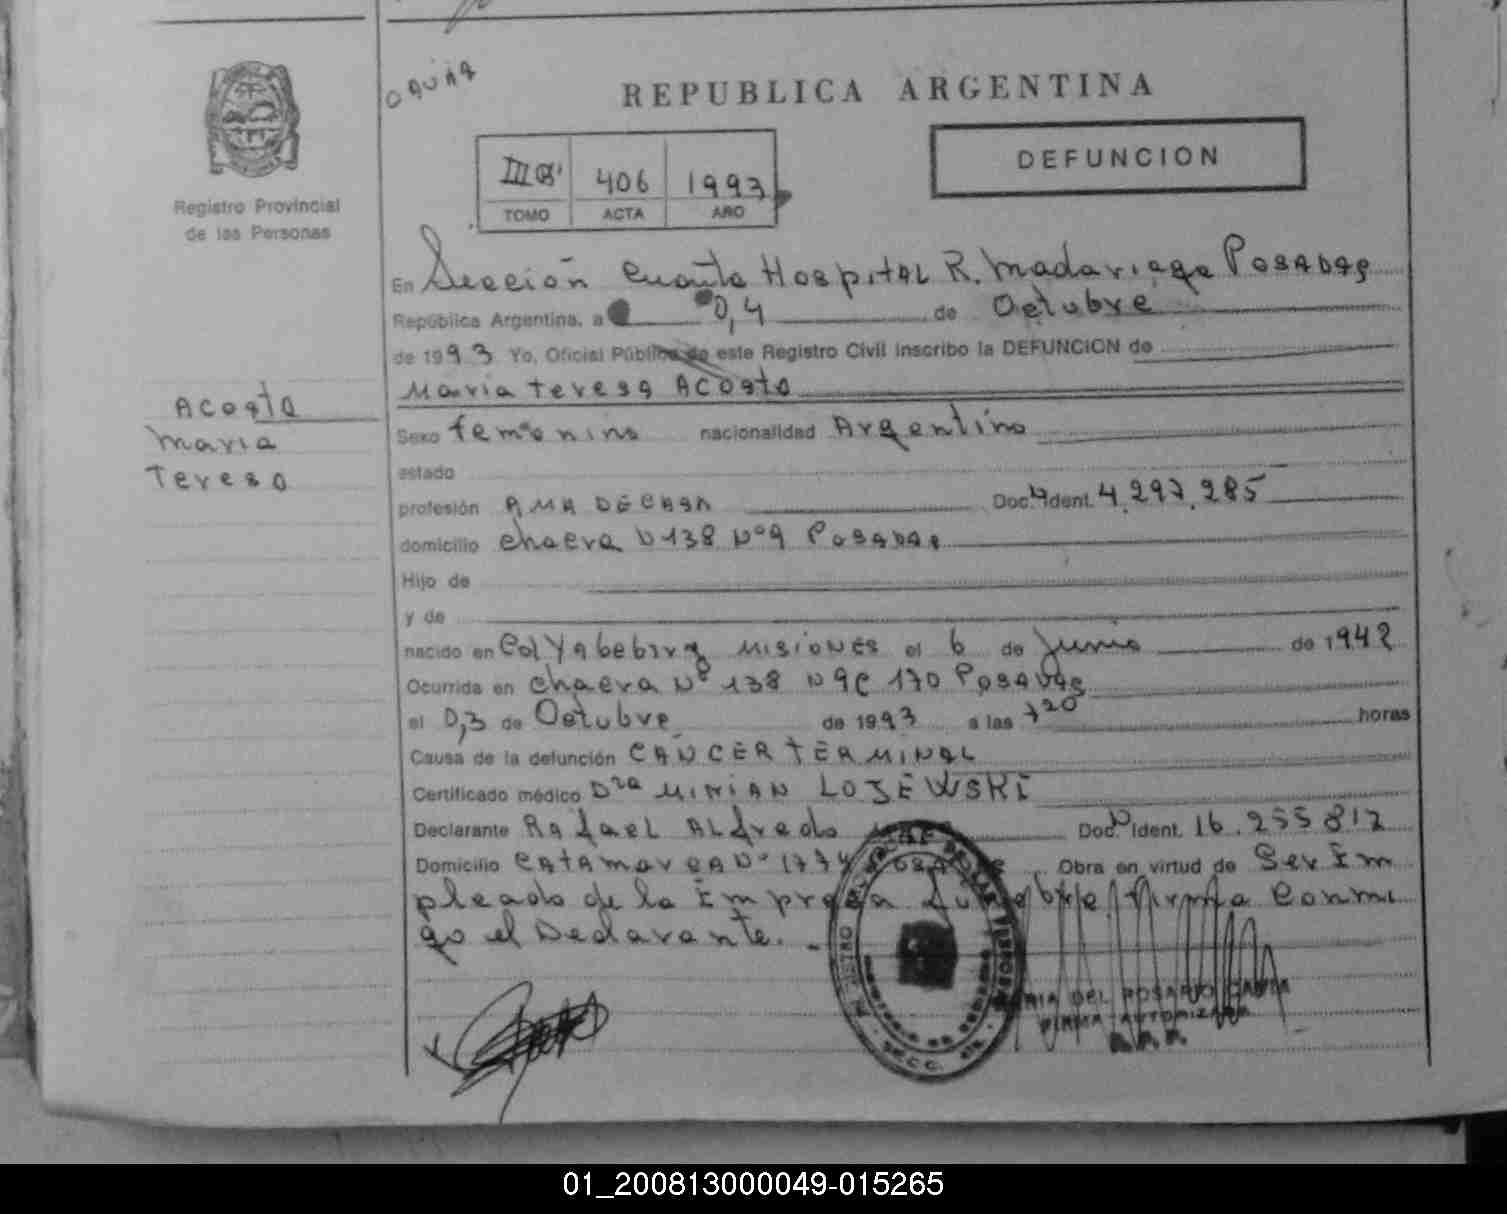 REPUBLICA ARGENTINA
DEFUNCION
III B' 406 1993
TOMO ACTA AÑO
Registro Provincial
de las Personas
En Sección Cuarta Hospital R. Madariaga Posadas
República Argentina, a 0,4 de Octubre
de 1993 Yo, Oficial Público de este Registro Civil inscribo la DEFUNCION de
Maria Teresa Acosta
Acosta
Maria
Teresa
Sexo femenino nacionalidad Argentina
estado
profesión AMA DE CASA Doc. Ident. 4.297.285
domicilio chacra N 138 Nº 9 Posadas
Hijo de
y de
nacido en Col Yabebiry Misiones el 6 de Junio de 1942
Ocurrida en chacra Nº 138 170 Posadas
el 0,3 de Octubre de 1993 a las 720 horas
Causa de la defunción CANCER TERMINAL
Certificado médico Dra MIRIAN LOJEWSKI
Declarante Rafael Alfredo Doc. Ident. 16.255.812
Domicilio Catamarca Nº 1774 Obra en virtud de Ser Em
pleado de la Empresa firma Conmi
go el Declarante.
MARIA DEL ROSARIO
FIRMA AUTORIZADA
01_200813000049-015265